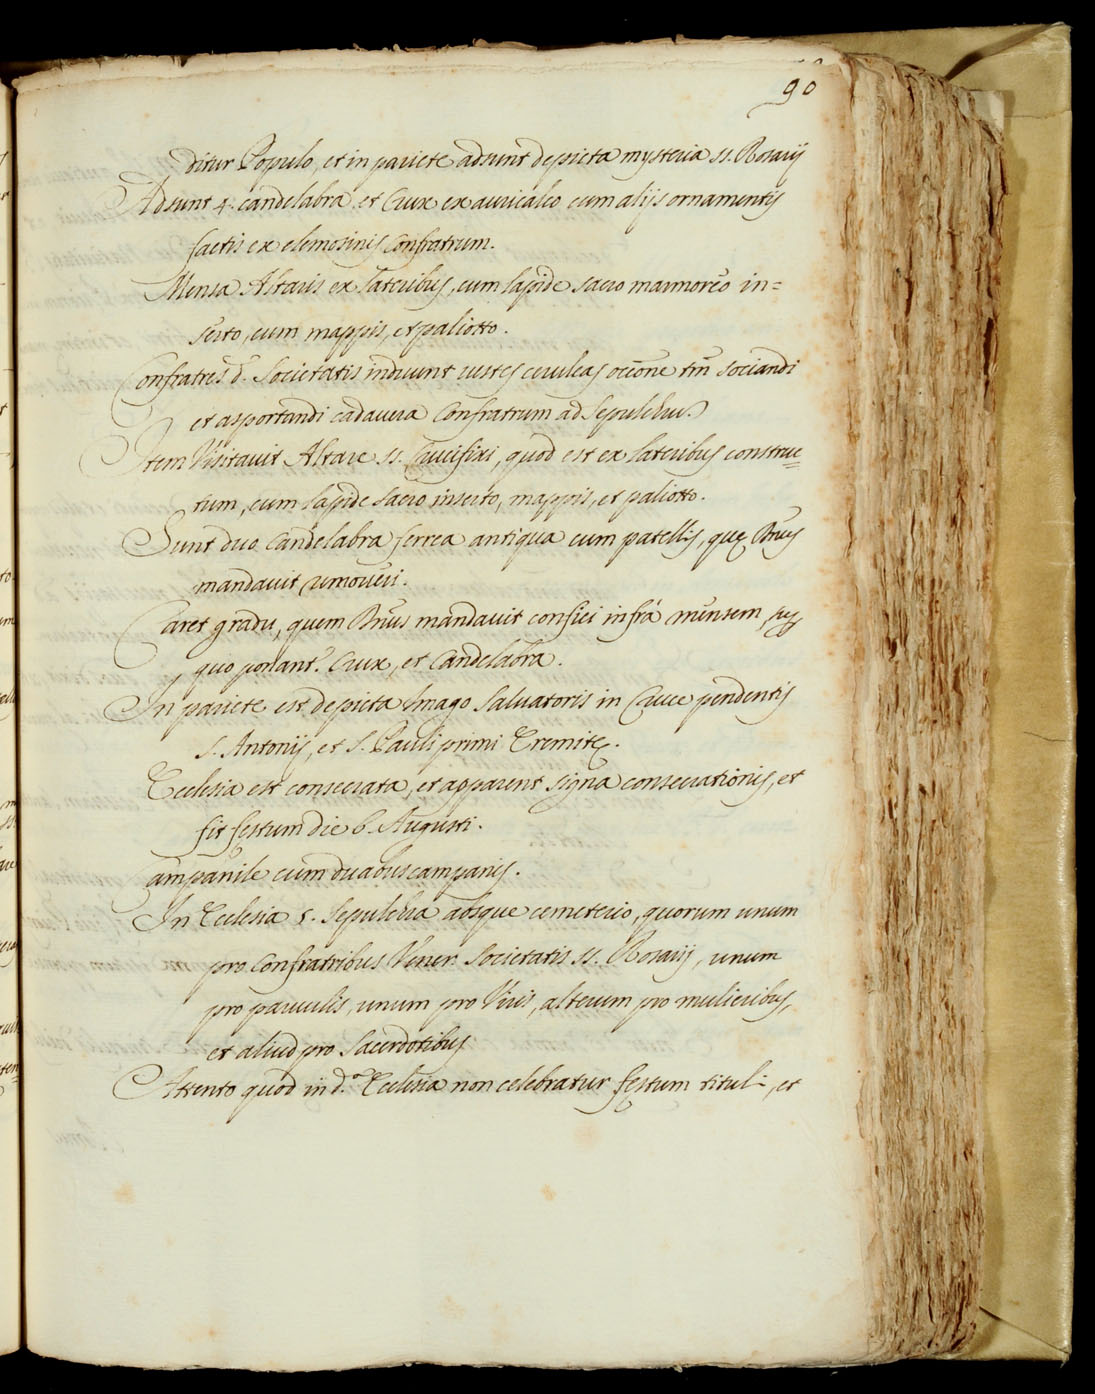 90
ditur Populo, et in pariete adsunt depicta mysteria SS. Rosarij
Adsunt 4. candelabra et Crux ex auricalco cum alijs ornamentis
factis ex elemosinis Confratrum.
Mensa Altaris ex lateribus, cum lapide sacro marmoreo in=
serto, cum mappis, et paliotto.
Confratres d. Societatis induunt vestes ceruleas occ̄one tm̄ sociandi
et asportandi cadavera Confratrum ad Sepulchru.
Item Visitavit Altare SS. Crucifixi, quod est ex lateribus construc=
tum, cum lapide sacro inserto, mappis, et paliotto.
Sunt duo Candelabra ferrea antiqua cum patellis, quę Dn̄us
mandavit removeri.
Caret gradu, quem Dn̄us mandavit confici infrà mensem, sup
quo ponant.r Crux, et Candelabra.
In pariete est depicta Imago Salvatoris in Cruce pendentis
S. Antonij, et S. Pauli primi Eremitę.
Ecclesia est consecrata, et apparent signa consecrationis, et
fit festum die 6. Augusti.
Campanile cum duabus campanis.
In Ecclesia 5. Sepulchra absque cemeterio, quorum unum
pro Confratribus Vener. Societatis SS. Rosarij, unum
pro parvulis, unum pro Viris, alterum pro mulieribus,
et aliud pro Sacerdotibus
Attento quod in d.ª Ecclesia non celebratur festum tituli, et